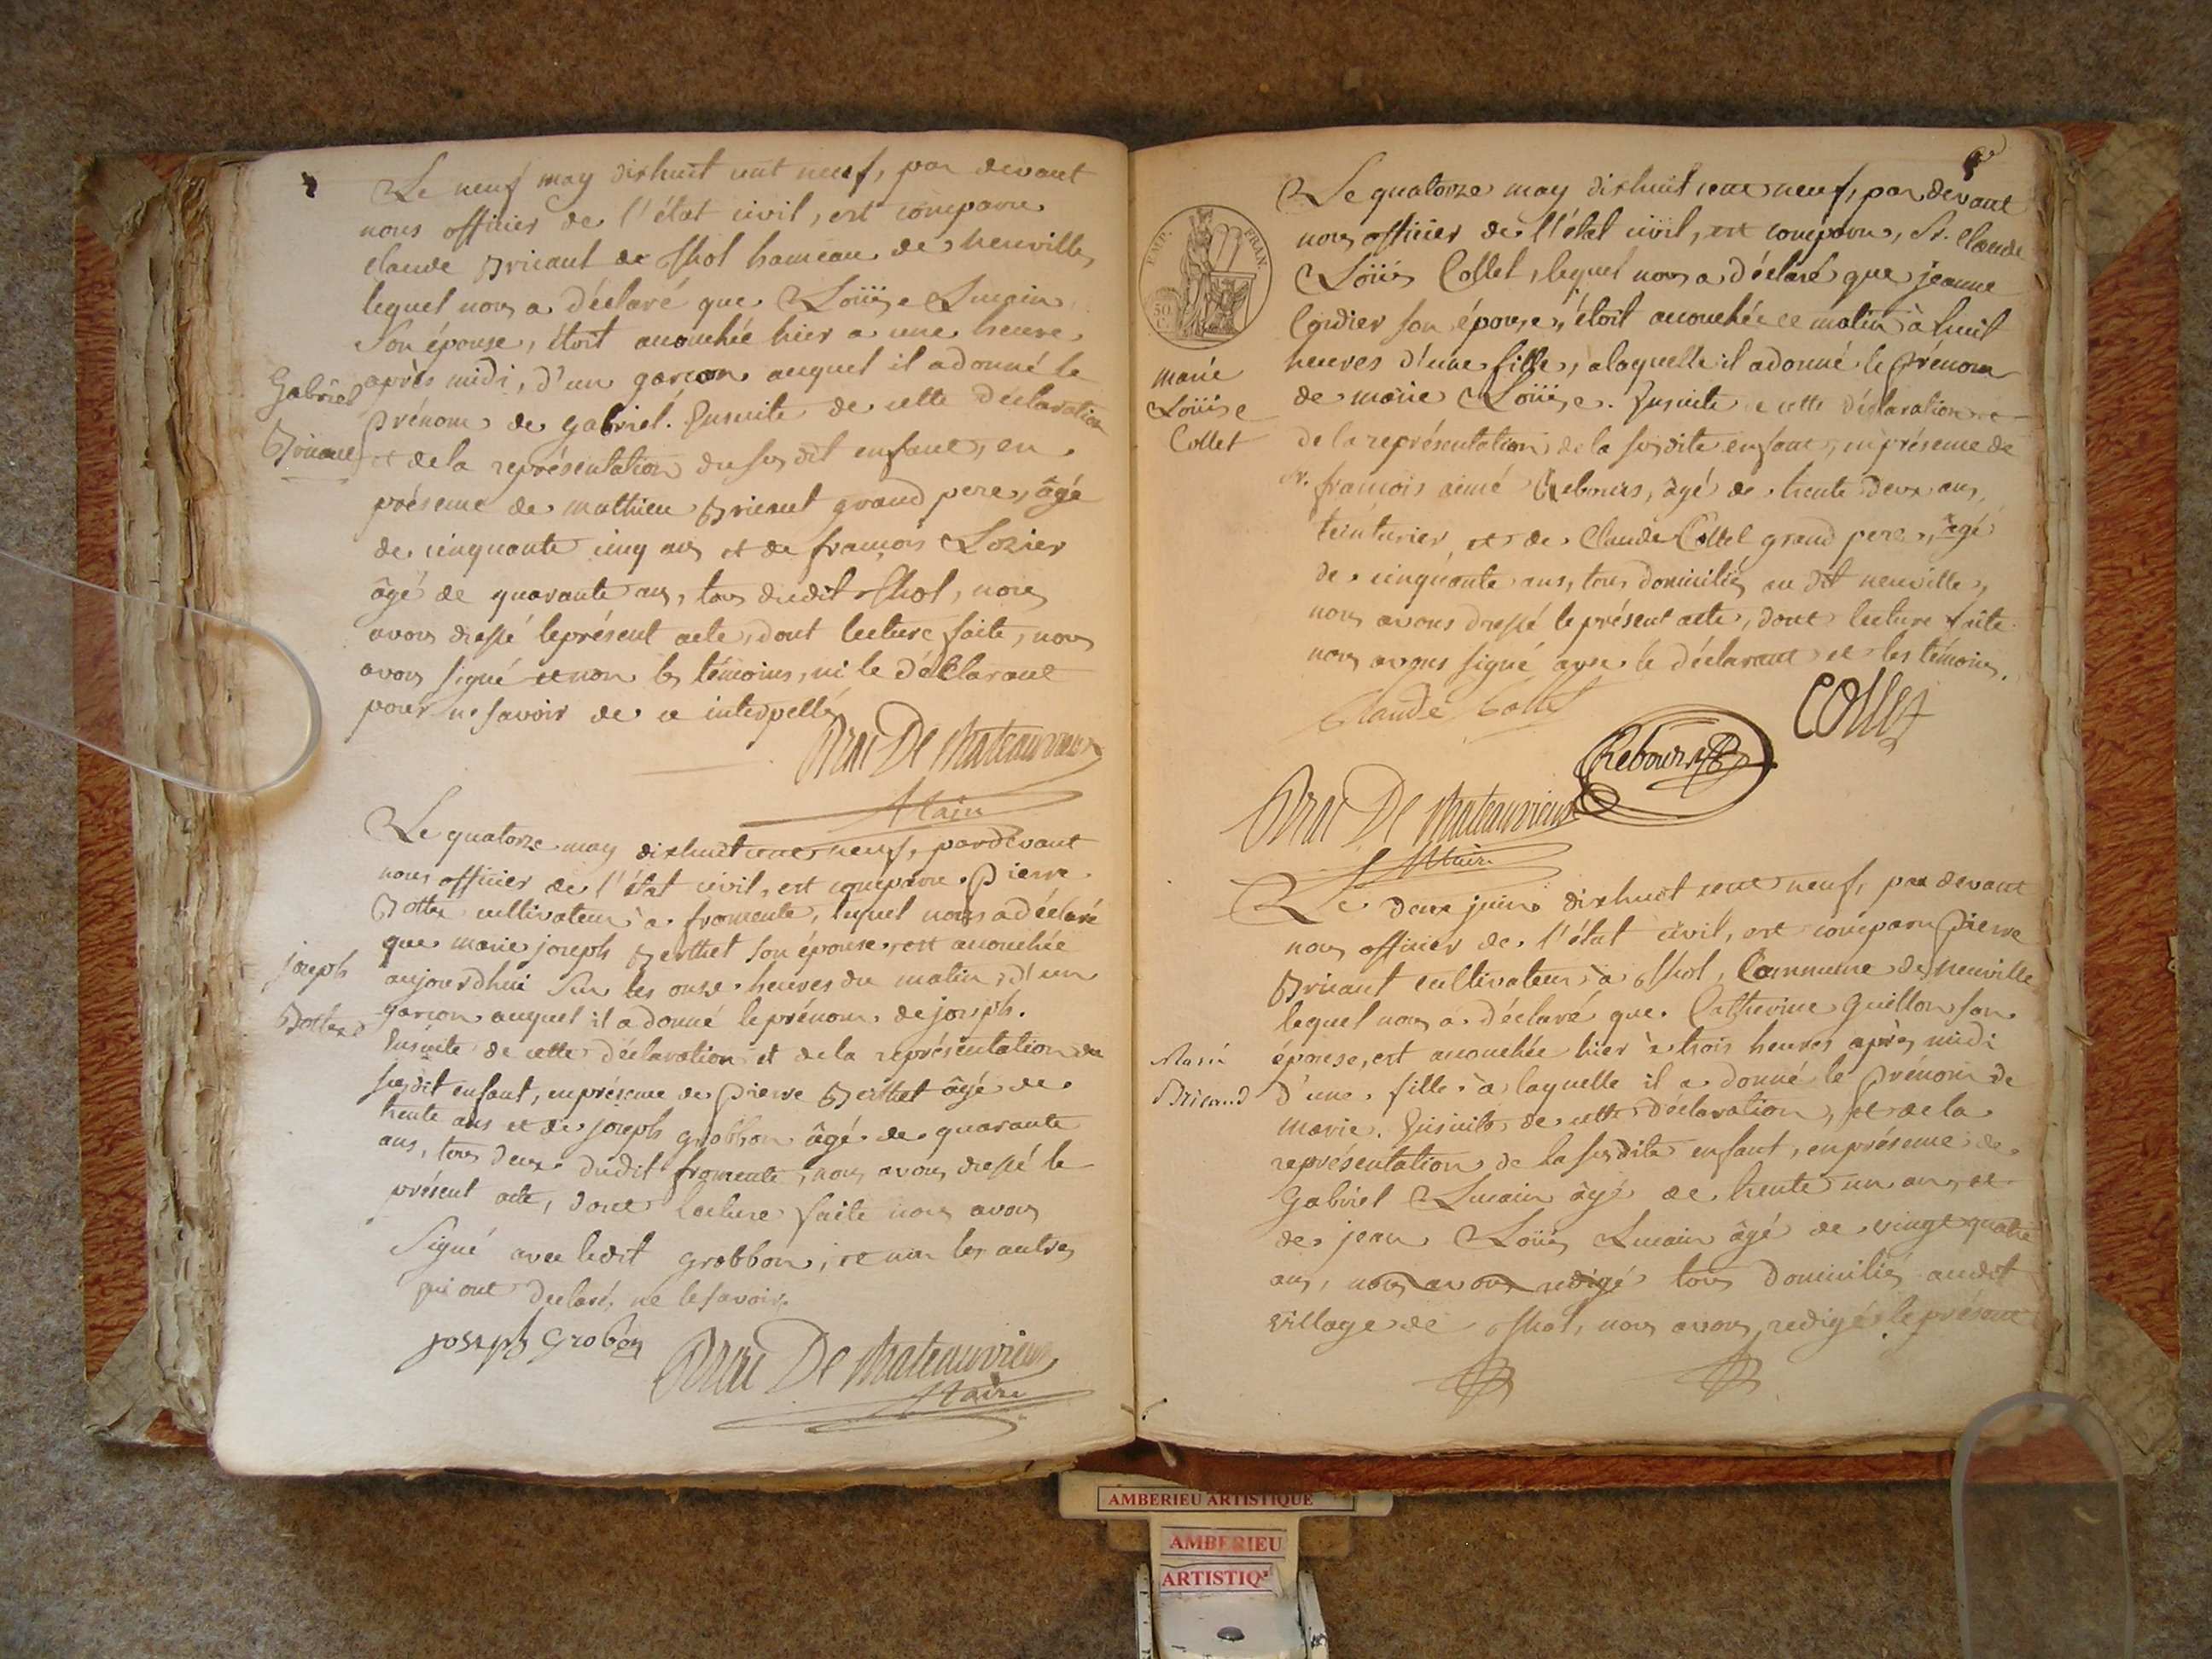 Le neuf may dixhuit cent neuf, par devant
nous officier de l'état civil, est comparu
Claude Bricaut de Thol hameau de neuville,
lequel nous a déclaré que Loüise Lucain
Son épouse, étoit accouchée hier a une heure
après midi, d'un garçon auquel il a donné le
prénom de gabriel. Ensuite de cette déclaration
et de la représentation du susdit enfant, en
présence de mathieu Bricaut grand pere, âgé
de cinquante cinq ans et de françois Lozier
âgé de quarante ans, tous dudit Thol, nous
avons dressé le présent acte, dont lecture faite, nous
avons signé et non les témoins, ni le déclarant
pour ne savoir de ce interpellés
Gabriel
Bricaut
De Chateauvieux
Maire
Le quatorze may dixhuit cent neuf, pardevant
nous officier de l'état civil, est comparu Pierre
Bottex cultivateur à fromente, lequel nous a déclaré
que marie joseph Berthet son épouse, est accouchée
aujourdhui Sur les onze heures du matin, d'un
garçon auquel il a donné le prénom de joseph.
Ensuite de cette déclaration et de la représentation du
susdit enfant, en présence de Pierre Berthet âgé de
trente ans et de joseph grobbon âgé de quarante
ans, tous deux dudit fromente, nous avons dressé le
présent acte, dont lecture faite nous avons
Signé avec ledit grobbon, et non les autres
qui ont déclaré ne le savoir.
joseph
Bottex
joseph Grobon
De Chateauvieux
Maire
EMP. FRAN.
50 C.
Le quatorze may dixhuit cent neuf, par devant
nous officier de l'état civil, est comparu, Sr. Claude
Loüis Collet, lequel nous a déclaré que jeanne
Cordier son épouse, étoit accouchée ce matin à huit
heures d'une fille, a laquelle il a donné le prénom
de marie Loüise. Ensuite de cette déclaration et
de la représentation de la susdite enfant, en présence de
Sr. françois aimé Rebours, âgé de trente deux ans,
teinturier, et de Claude Collet grand pere, âgé
de cinquante ans, tous domiciliés au dit neuville,
nous avons dressé le présent acte, dont lecture faite
nous avons signé avec le déclarant et les témoins.
marie
Loüise
Collet
Claude Collet
COllet
Rebours
De Chateauvieux
Maire
Le deux juin dixhuit cent neuf, par devant
nous officier de l'état civil, est comparu Pierre
Bricaut cultivateur à Thol, Commune de neuville
lequel nous a déclaré que Catherine Guillon son
épouse, est accouchée hier à trois heures après midi
d'une fille à laquelle il a donné le prénom de
marie. Ensuite de cette déclaration, et de la
représentation de la susdite enfant, en présence de
Gabriel Lucain âgé de trente un ans, et
de jean Loüis Lucain âgé de vingt quatre
ans, nous avons redigé tous domiciliés audit
village de Thol, nous avons redigé le présent
Marie
Bricaud
AMBERIEU ARTISTIQUE
AMBERIEU
ARTISTIQ